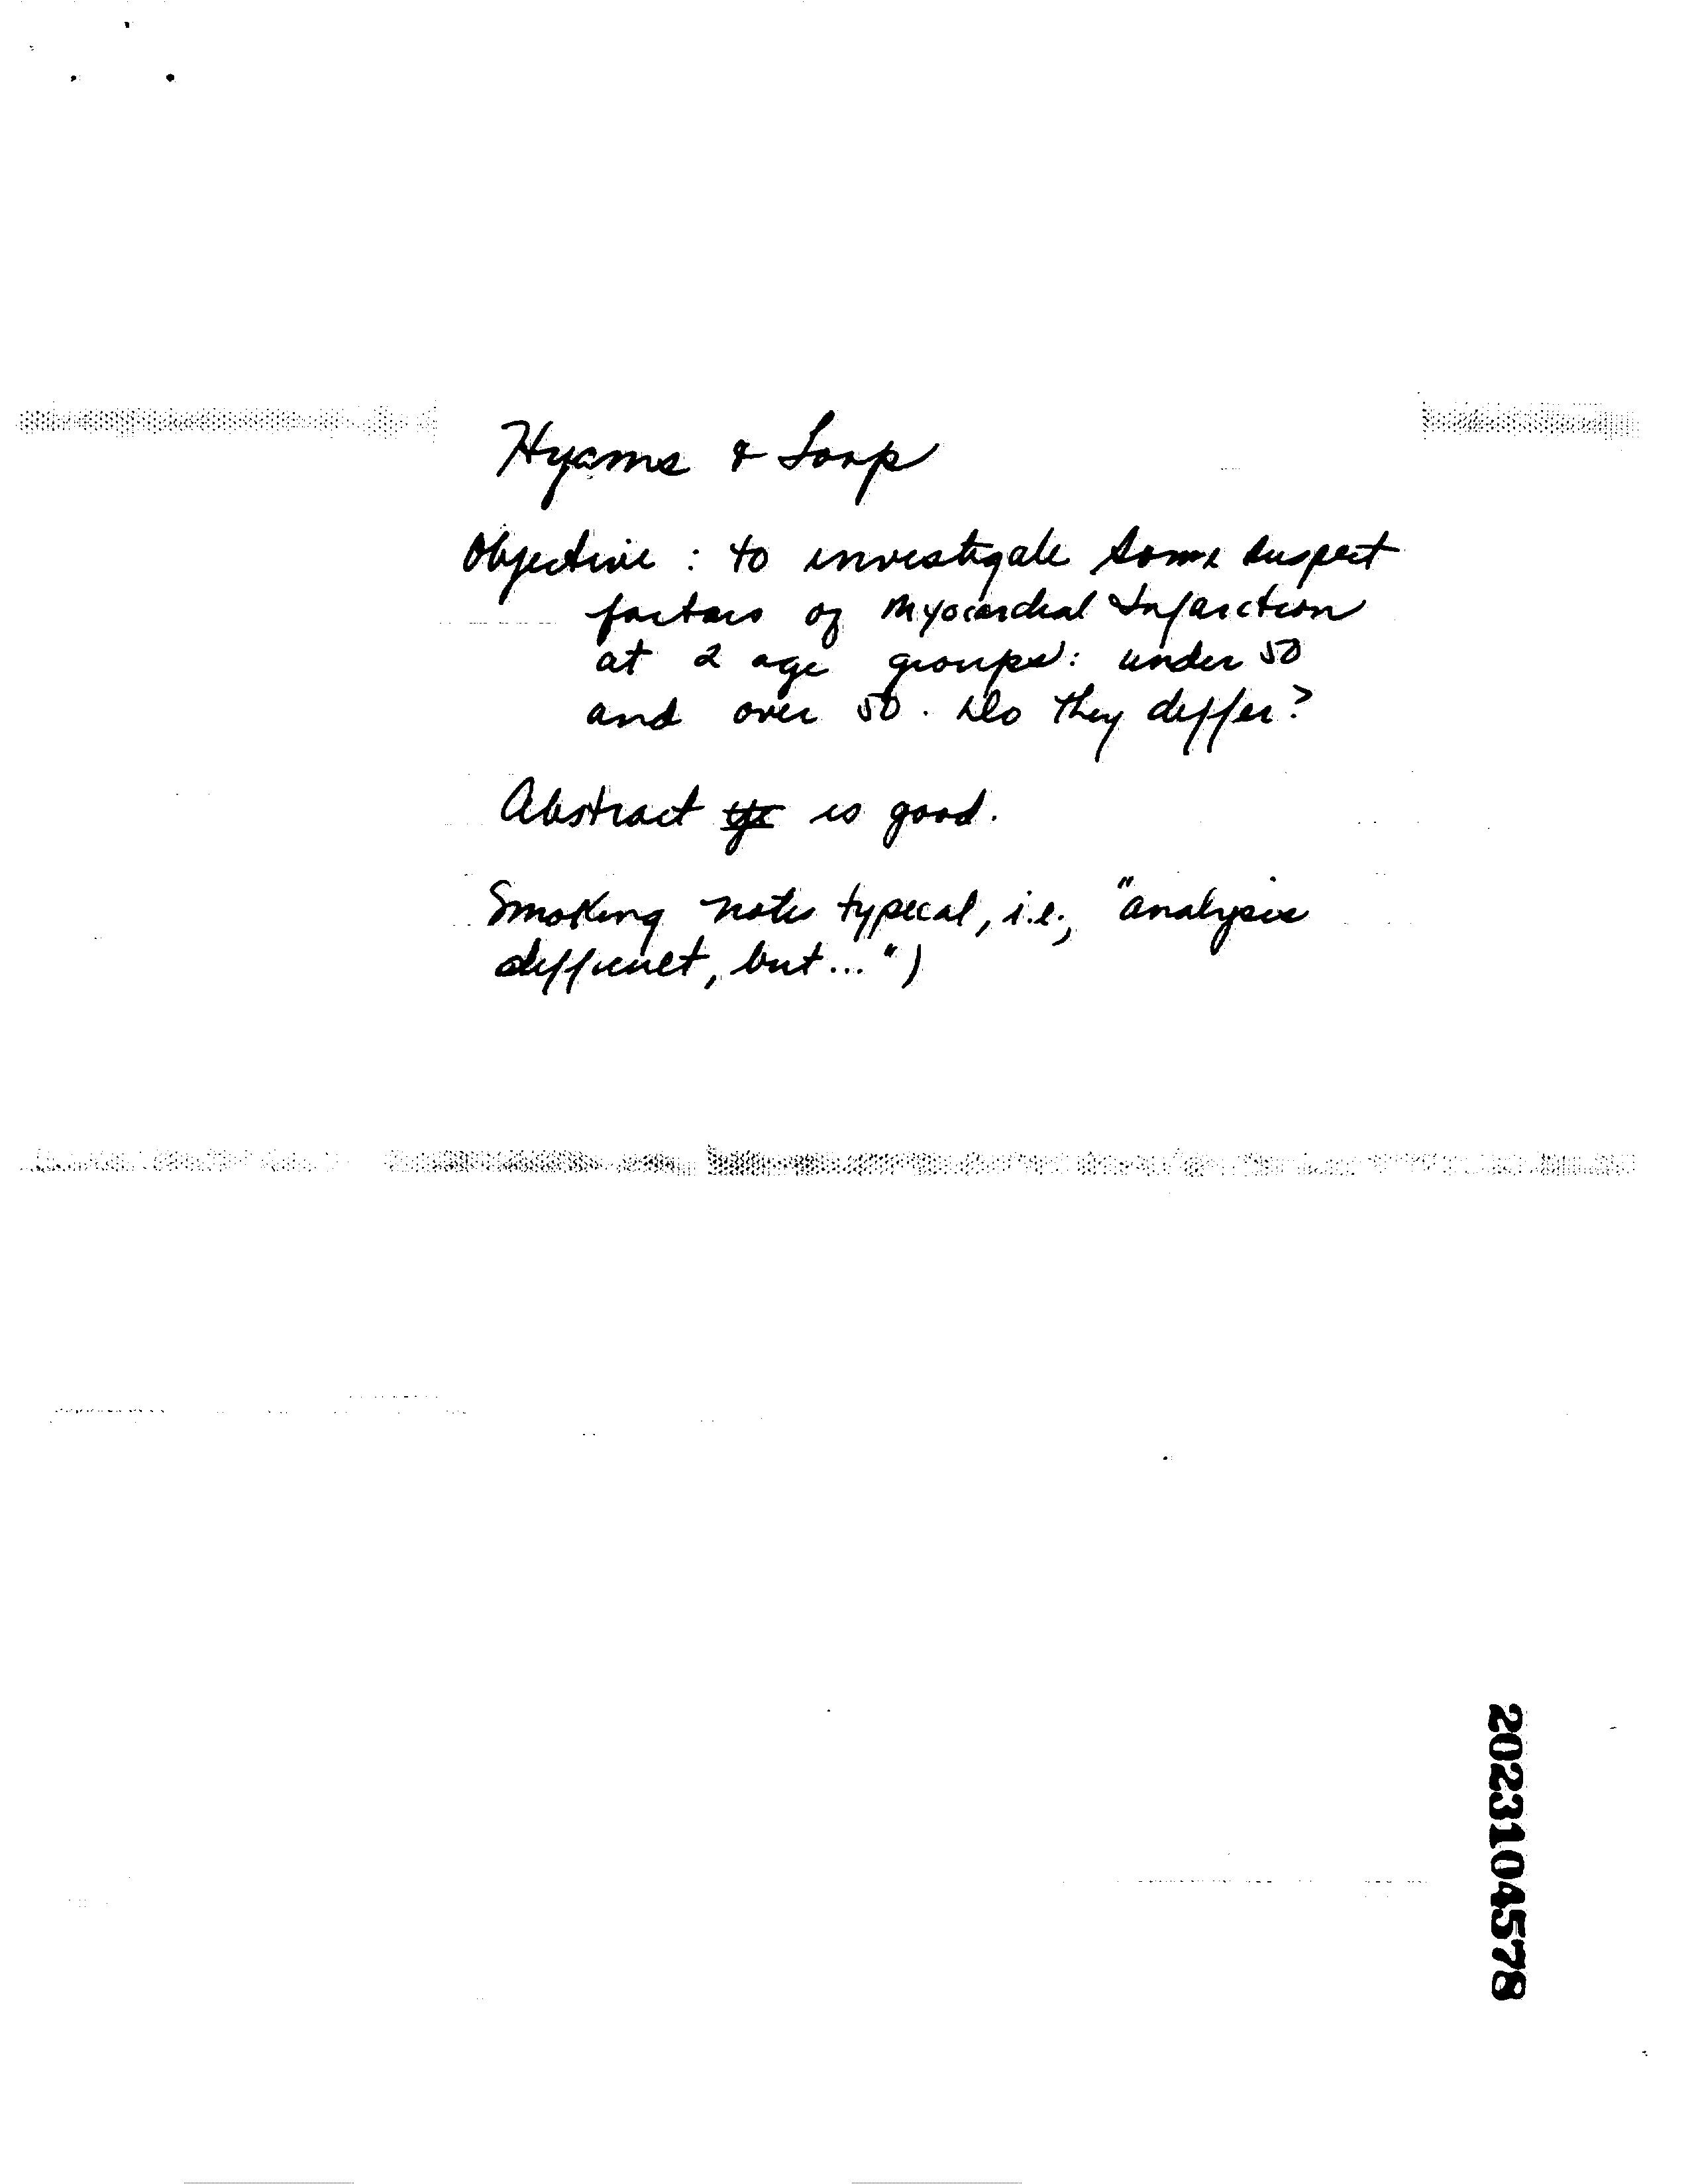 Hyams & Loop
Objective : to investigate some suspect
factors of Myocardial Infarction
at 2 age groups: under 50
and over 50. Do they differ?
Abstract is good.
Smoking notes typical, i.e., "analysis
difficult, but ...")
2023104578